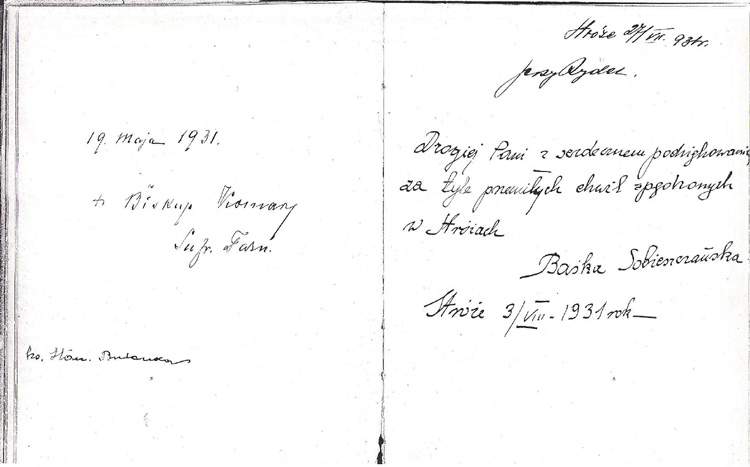 19. maja 1931.
+ Biskup Komar
Sufr. Tarn.
ks. Stan.
Stróże 27/VII. 931r.
Jerzy Rydel.
Drogiej Pani z serdecznem podziękowaniem
za tyle przemiłych chwil spędzonych
w Stróżach
Baśka Sobieszczańska
Stróże 3/VIII - 1931 rok